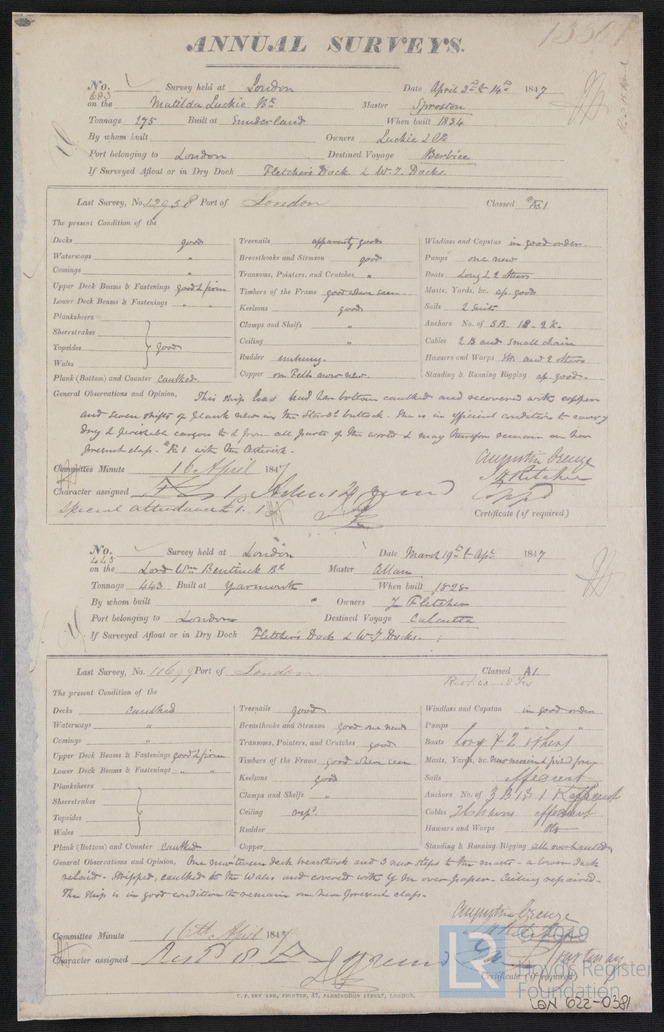 ANNUAL SURVEYS.
No. 683 Survey held at London Date April 2nd & 14th 1847
on the Matilda Luckie Bk Master Sproston
Tonnage 275 Built at Sunderland When built 1834
By whom built Owners Luckie & Co
Port belonging to London Destined Voyage Berbice
If Surveyed Afloat or in Dry Dock Fletchers Dock & W.I. Docks.
Last Survey, No. 12958 Port of London Classed Æ 1
The present Condition of the
Decks good Treenails apparently good Windlass and Capstan in good order
Waterways " Breasthooks and Stemson good Pumps one new
Comings " Transoms, Pointers, and Crutches " Boats Long & 2 others
Upper Deck Beams & Fastenings good & firm Timbers of the Frame good where seen Masts, Yards, &c. ap. good
Lower Deck Beams & Fastenings " " Keelsons good Sails 2 suits
Planksheers Clamps and Shelfs " Anchors No. of 3B. 1S. 2K.
Sheerstrakes Ceiling " Cables 2 B and small chain
Topsides good Rudder Hawsers and Warps Str. and 2 others
Wales Copper on Felt now new. Standing & Running Rigging ap. good.
Plank (Bottom) and Counter caulked.
General Observations and Opinion, This ship has had her bottom caulked and recovered with copper
and seven shifts of plank new in the Starbd buttock. She is in efficient condition to carry
dry & perishable cargoes to & from all parts of the world & may therefore remain in her
present class. Æ 1 with the Asterisk.
Augustin Creuze
Committee Minute 16 April 1847
Character assigned
Special attendance
Certificate (if required)
No. 443 Survey held at London Date March 19th & Apr. 1847
on the Lord Wm Bentinck Bk Master Allan
Tonnage 443 Built at Yarmouth When built 1828
By whom built " Owners J Fletcher
Port belonging to London Destined Voyage Calcutta
If Surveyed Afloat or in Dry Dock Fletchers Dock & W.I. Docks.
Last Survey, No. 11699 Port of London Classed A1.
The present Condition of the
Decks caulked Treenails good Windlass and Capstan in good order
Waterways " Breasthooks and Stemson good one new Pumps " " "
Comings " Transoms, Pointers, and Crutches good Boats Long & 2 others
Upper Deck Beams & Fastenings good & firm Timbers of the Frame good where seen Masts, Yards, &c.
Lower Deck Beams & Fastenings " " Keelsons good Sails efficient
Planksheers Clamps and Shelfs " Anchors No. of 3 B 1 S 1 K efficient
Sheerstrakes Ceiling repd. Cables efficient
Topsides Rudder Hawsers and Warps
Wales Copper Standing & Running Rigging all overhauled
Plank (Bottom) and Counter caulked
General Observations and Opinion, One new tween deck breasthook and 3 new steps to the masts - a lower deck
relaid. Stripped, caulked to the Wales and covered with Y M over paper. Ceiling repaired.
The ship is in good condition to remain in her present class.
Augustin Creuze
Committee Minute 16th April 1847
Character assigned
Certificate (if required)
LR
2019
Lloyd's Register
Foundation
LON 622-0381